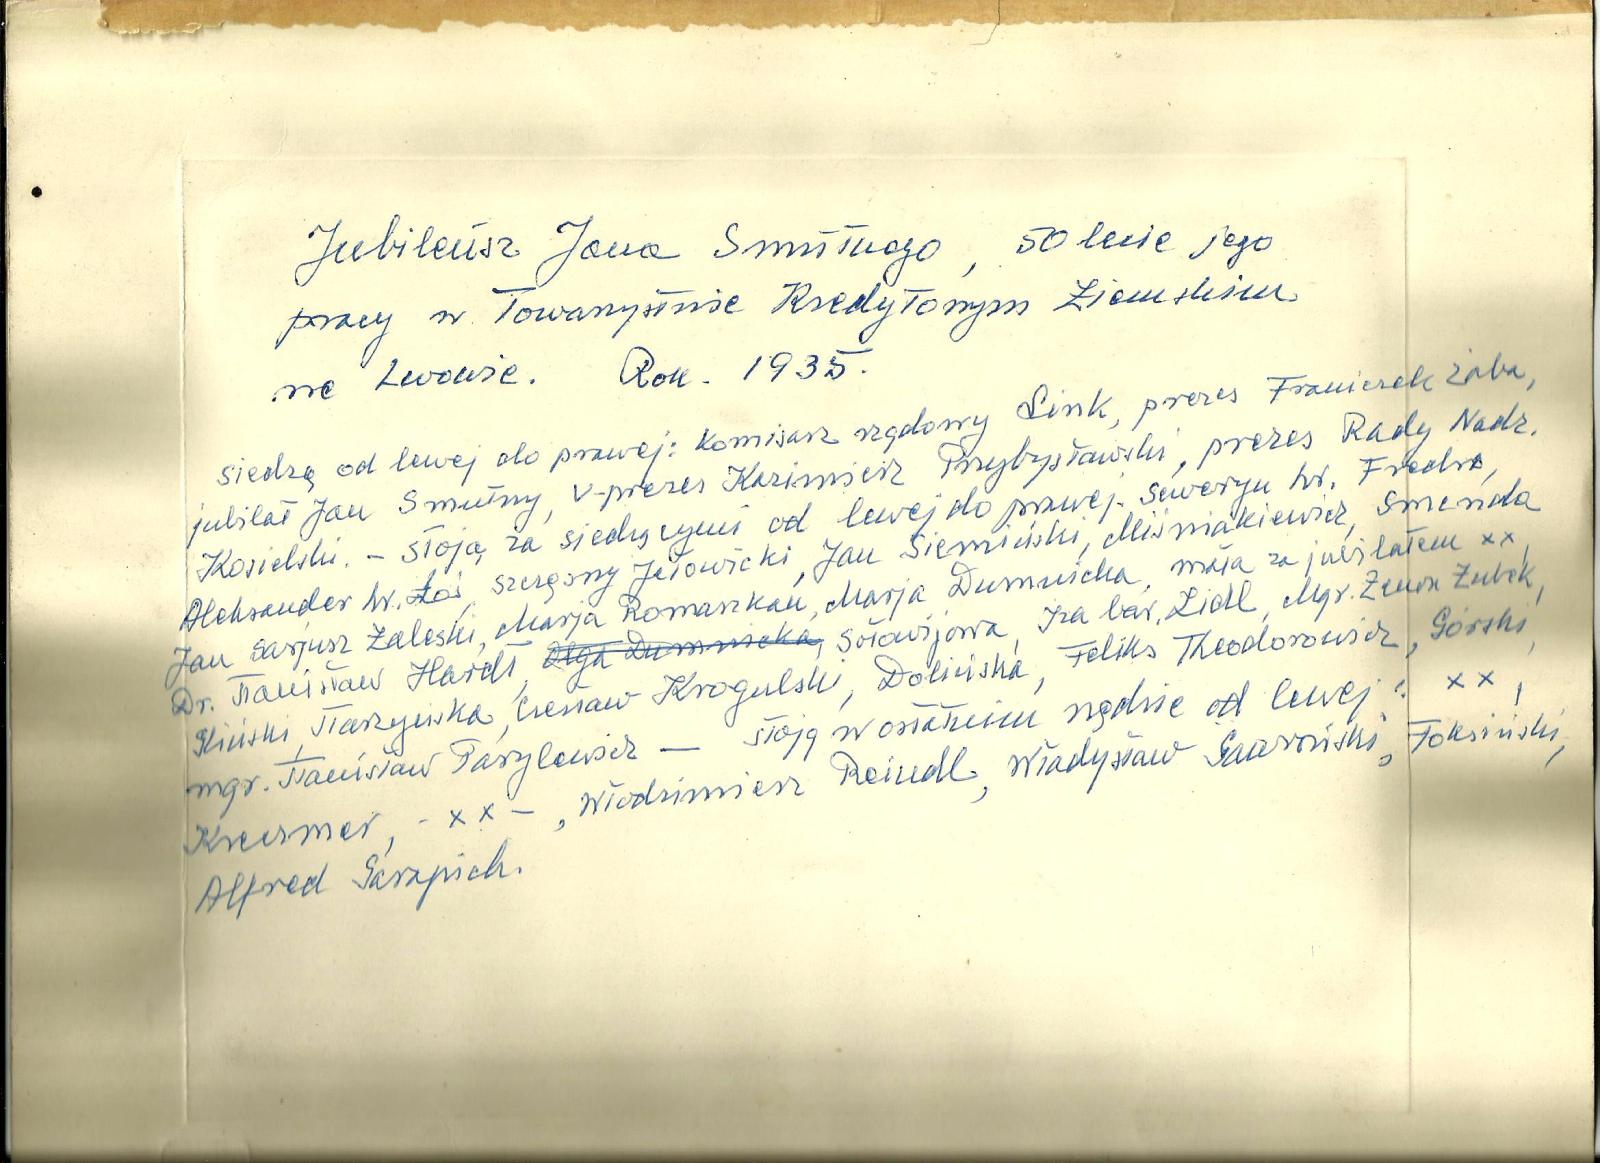 Jubileusz Jana Smutnego, 50 lecie jego
pracy w Towarzystwie Kredytowym Ziemskim
we Lwowie. Rok. 1935.
siedzą od lewej do prawej: komisarz rządowy Link, prezes Franciszek Żaba,
jubilat Jan Smutny, v-prezes Kazimierz Przybysławski, prezes Rady Nadz.
Kosielski. – stoją za siedzącymi od lewej do prawej. Seweryn hr. Fredro,
Aleksander hr. Łoś, Szczęsny Jełowicki, Jan Siemiński, Miśniakiewicz, Smenda
Jan Garjusz Zaleski, Marja Romaszkan, Marja Dumnicka, mała za jubilatem xx,
Dr. Stanisław Hardt, Olga Dumnicka, Sołowijowa, Iza bar. Lidl, Mgr. Zenon Zubek,
Gliński, Starzyńska, Czesław Krogulski, Dolińska, Feliks Theodorowicz, Górski,
mgr. Stanisław Paryłowicz — stoją w ostatnim rzędzie od lewej: xx,
, - xx –, Włodzimierz Reindl, Władysław, Foksiński,
Alfred Garapich.